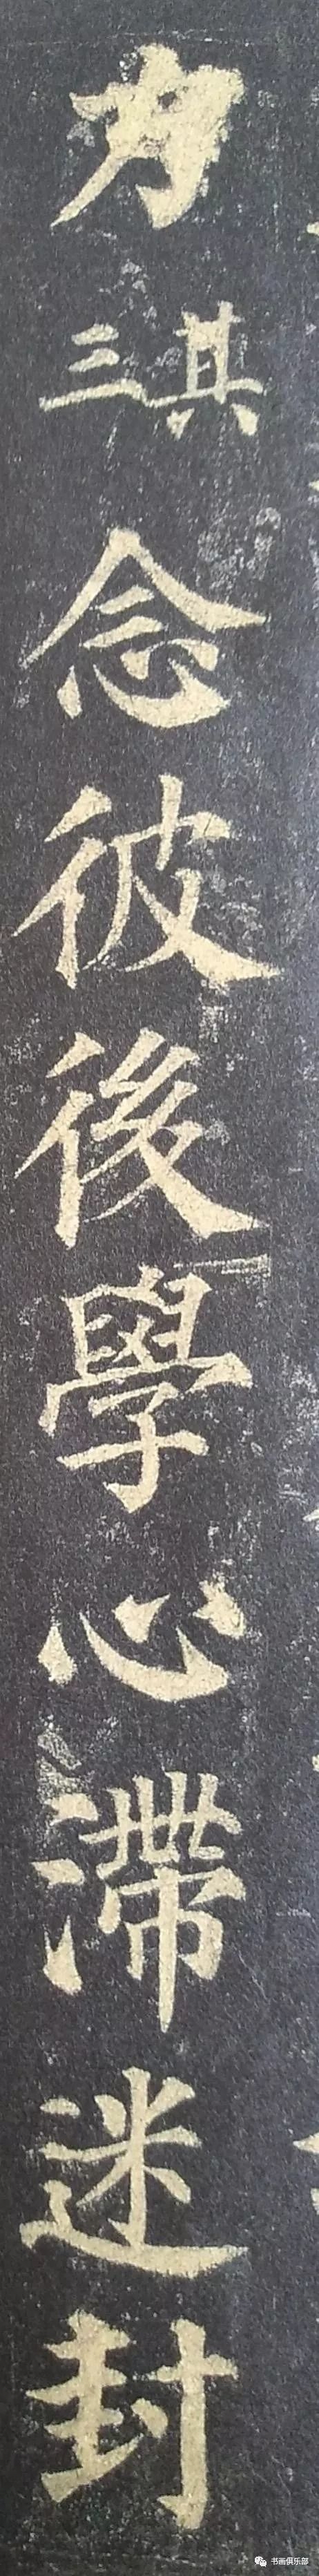 力其三念彼後學心滯迷封
书画俱乐部